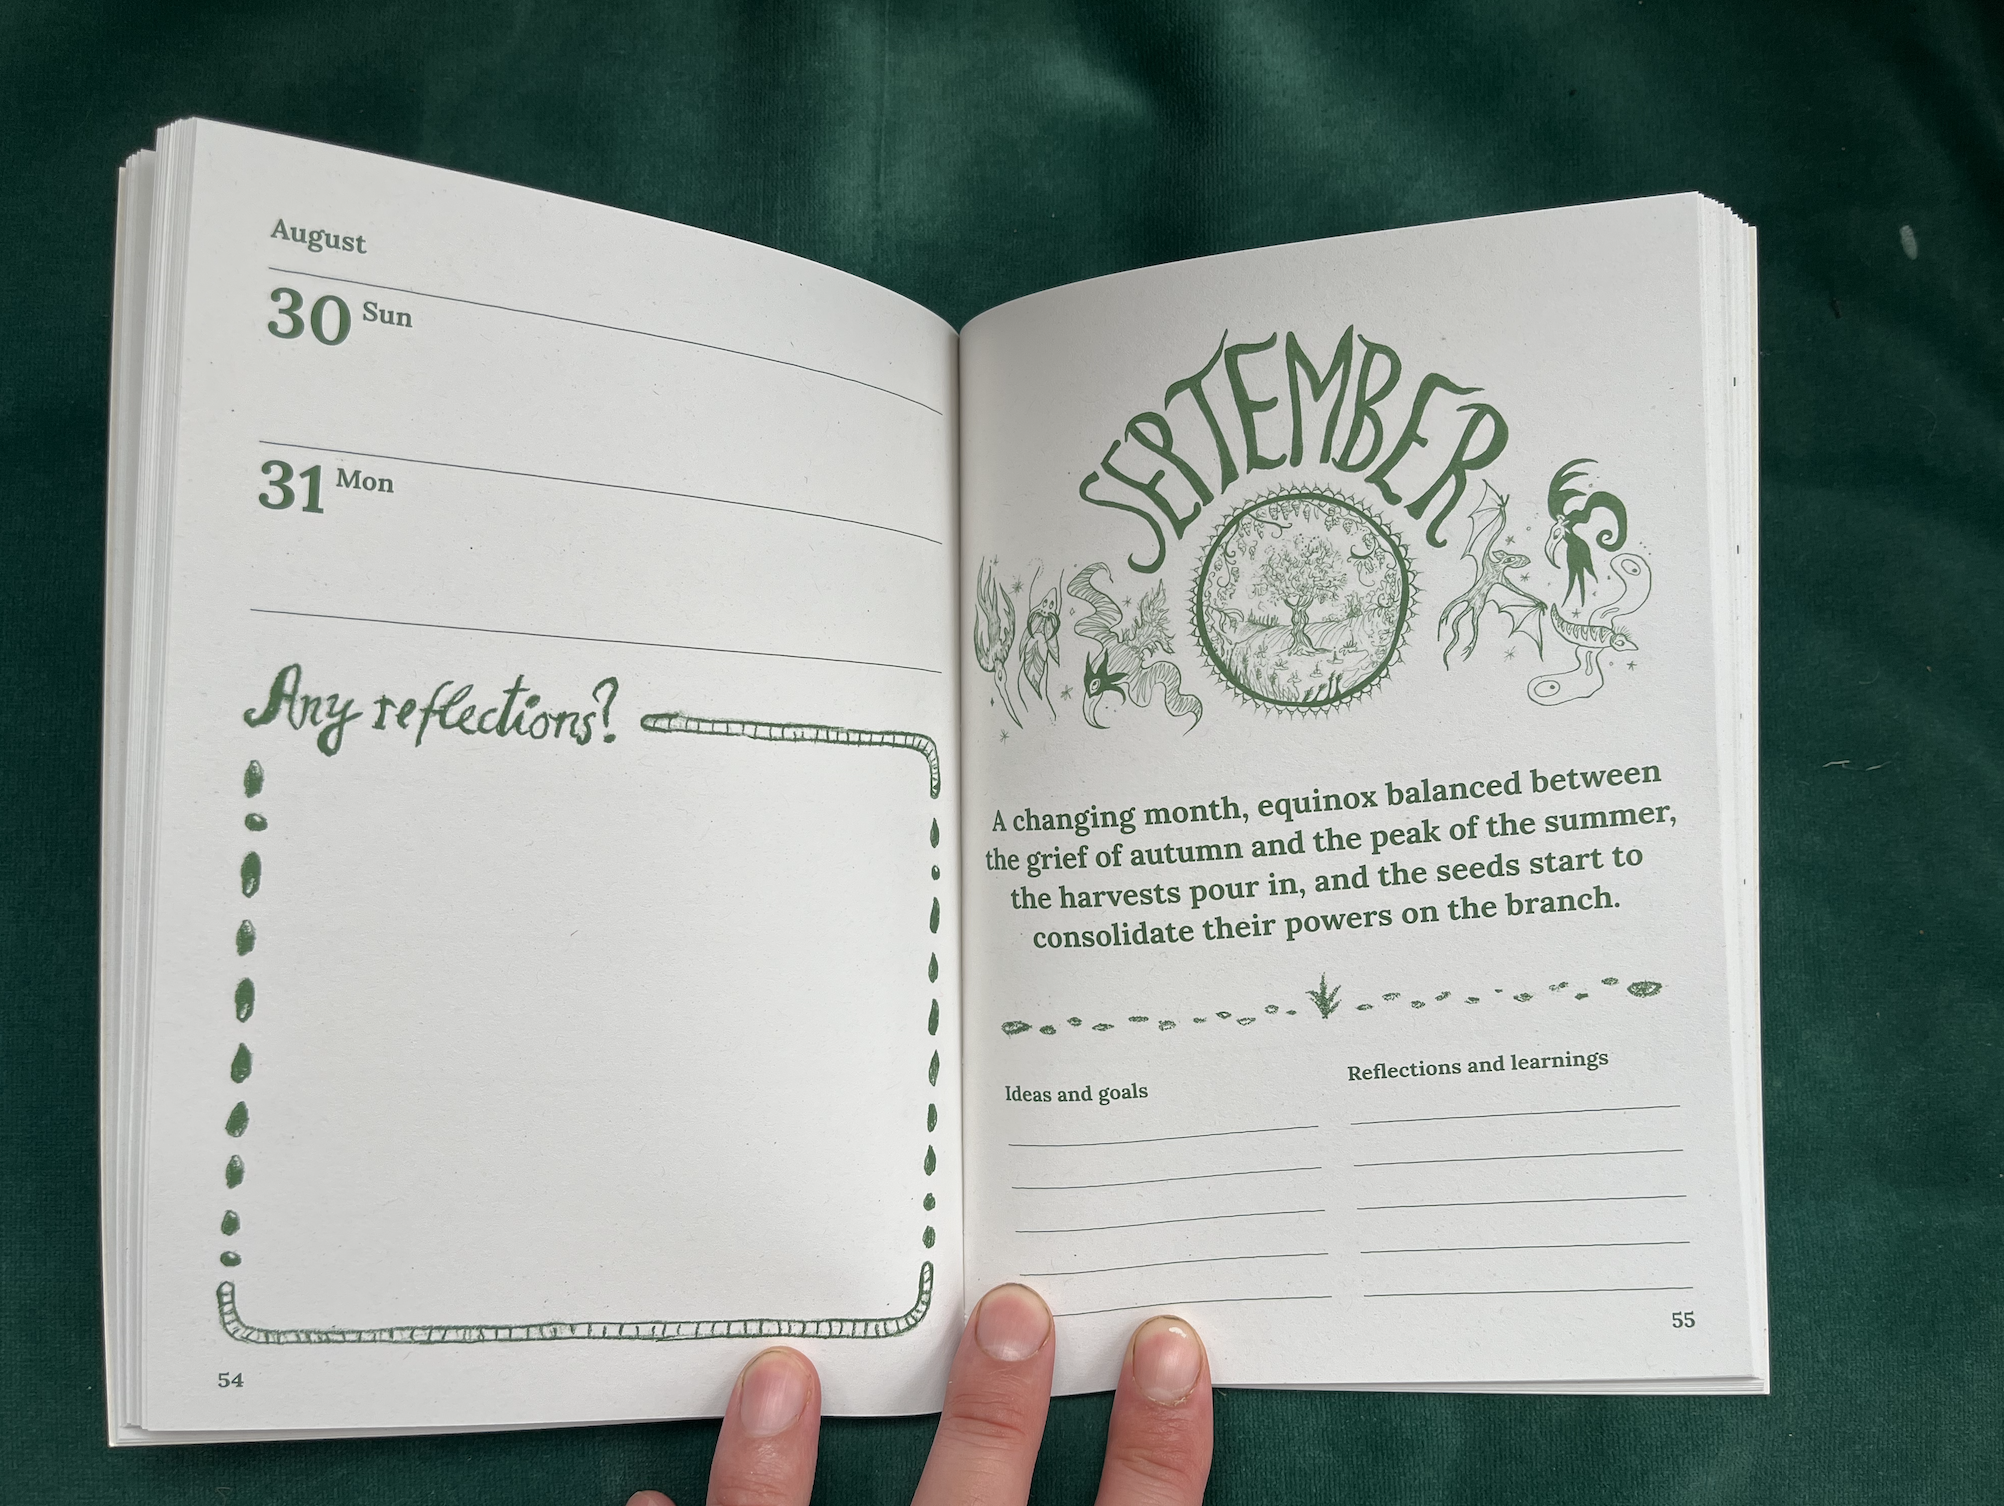 August
30 Sun
31 Mon
Any reflections?
54
SEPTEMBER
A changing month, equinox balanced between
the grief of autumn and the peak of the summer,
the harvests pour in, and the seeds start to
consolidate their powers on the branch.
Ideas and goals
Reflections and learnings
55